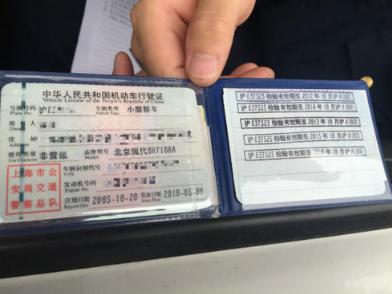 中华人民共和国机动车行驶证
Vehicle License of the People's Republic of China
号牌号码 沪E 车辆类型 小型轿车
Plate No. Vehicle Type
所有人
Owner
住址
使用性质 非营运 品牌型号 北京现代BH7180A
Use Character Model
车辆识别代号
VIN
发动机号码
Engine No.
注册日期 2005-10-20 发证日期 2010-05-04
Register Date
上海市公
安局交通
警察总队
沪E37525 检验有效期至2012年10月沪A(00)
沪E37525 检验有效期至2014年10月沪A(00)
沪E37525 检验有效期至
沪E37525 检验有效期至2015年10月沪A(00)
沪E37525 检验有效期至